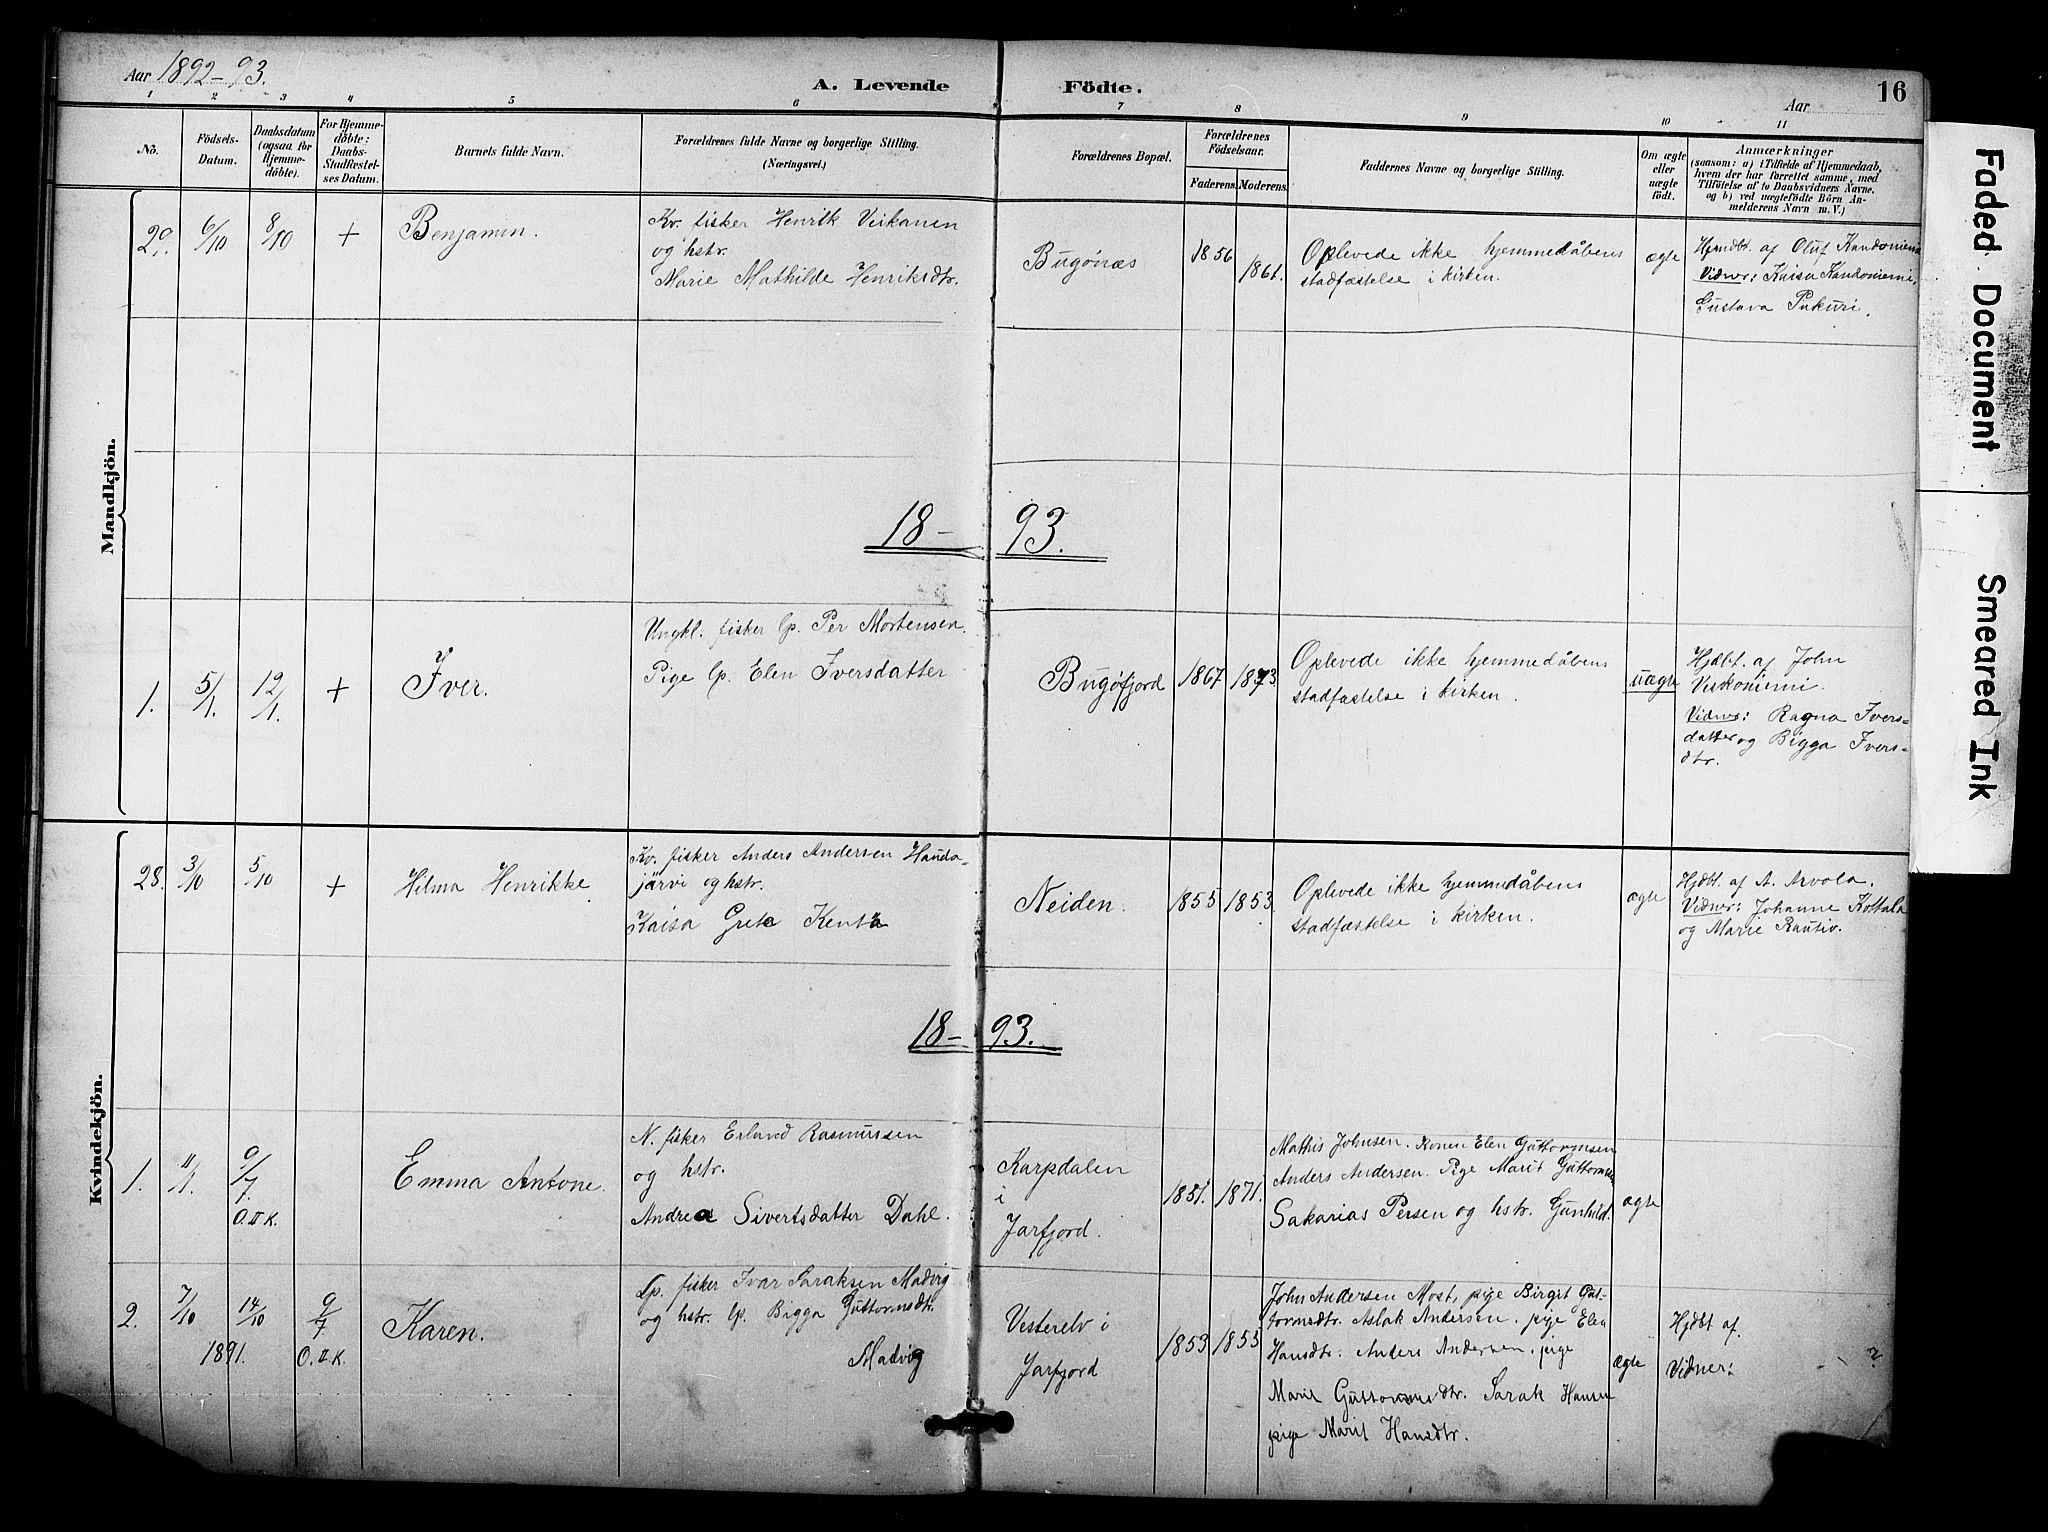 Aar 1892-93.
A. Levende Födte.
Aar
16
1 2 3 4 5 6 7 8 9 10 11
No.
Födsels-
Datum.
Daabsdatum
(ogsaa for
Hjemme-
döbte).
For Hjemme-
döbte:
Daabs-
Stadfæstel-
ses Datum.
Barnets fulde Navn.
Forældrenes fulde Navne og borgerlige Stilling.
(Næringsvei.)
Forældrenes Bopæl.
Forældrenes
Födselsaar.
Faderens. Moderens.
Faddernes Navne og borgerlige Stilling.
Om ægte
eller
uægte
födt.
Anmærkninger
(saasom: a) i Tilfælde af Hjemmedaab,
hvem der har forrettet samme, med
Tilföielse af to Daabsvidners Navne,
og b) ved uægtefödte Börn An-
melderens Navn m. V.)
Mandkjön.
29. 6/10 8/10 + Benjamin.
Kv. fisker Henrik Veikanen
og hstr.
Marie Mathilde Henriksdtr.
Bugönæs
1856 1861.
Oplevede ikke hjemmedåbens
stadfæstelse i kirken.
ægte
Hjmdbt. af Oluf Kandoniemi
Vidner: Kaisa Kandoniemi,
Gustava Pukuri.
18-93.
1. 5/1. 12/1. + Iver.
Ungkl. fisker lp. Per Mortensen.
Pige lp. Elen Iversdatter
Bugöfjord
1867 1873.
Oplevede ikke hjemmedåbens
stadfæstelse i kirken.
uægte
Hjdbt. af John
Veskoniemi.
Vidner: Ragna Ivers-
datter og Bigga Ivers-
dtr.
Kvindekjön.
28. 3/10 5/10 + Hilma Henrikke.
Kv. fisker Anders Andersen Handa-
järvi og hstr.
Kaisa Greta Kenta
Neiden.
1855 1853.
Oplevede ikke hjemmedåbens
stadfæstelse i kirken.
ægte
Hjdbt. af A. Arvola.
Vidner: Johanne Kottala
og Marie Rautio.
18-93.
1. 11/1. 9/7. O.II K. Emma Antone.
N. fisker Erland Rasmussen
og hstr.
Andrea Sivertsdatter Dahl.
Karpdalen
i
Jarfjord.
1851. 1871.
Mathis Johnsen. Konen Elen Guttormsen
Anders Andersen. Pige Marit Guttormsen
Sakarias Persen og hstr. Gunhild.
ægte
2. 7/10 14/10 1891. 9/7 O.II K. Karen.
Lp. fisker Ivar Saraksen Madvig
og hstr. lp. Bigga Guttormsdtr.
Madvig
Vesterelv i
Jarfjord
1853 1855
John Andersen Most, pige Birgit Gut-
tormsdtr. Aslak Andersen. pige Elen
Hansdtr. Anders Andersen. pige
Marit Guttormsdtr. Sarak Hansen
pige Marit Hansdtr.
ægte
Hjdbt af.
Vidner: ?
Faded Document
Smeared Ink